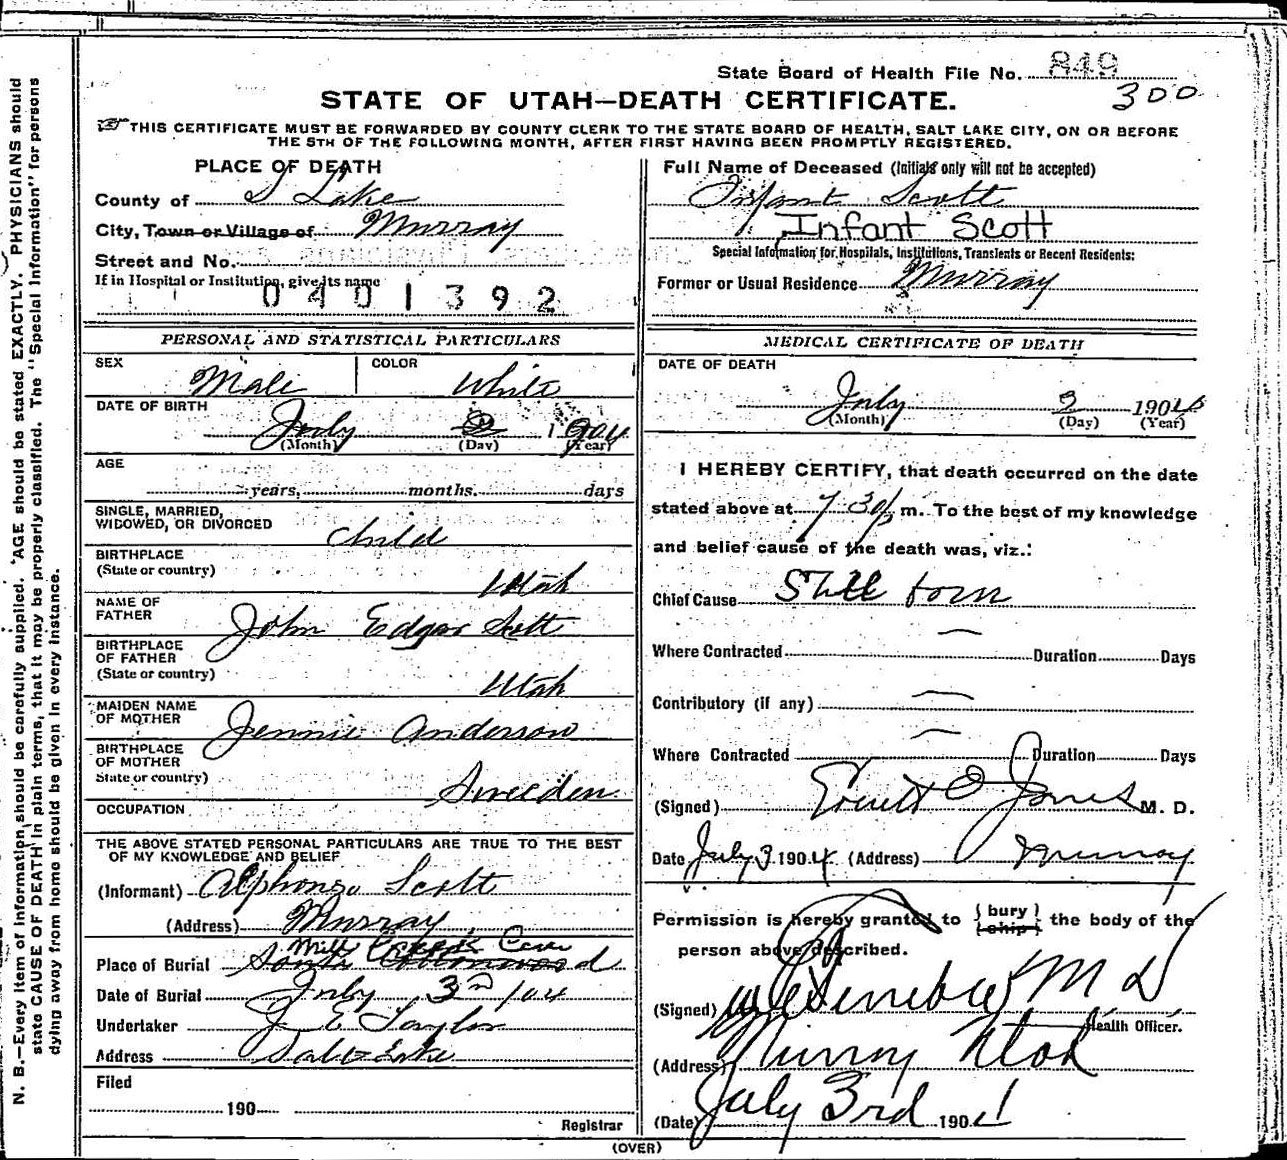 State Board of Health File No. 849
300
STATE OF UTAH—DEATH CERTIFICATE.
THIS CERTIFICATE MUST BE FORWARDED BY COUNTY CLERK TO THE STATE BOARD OF HEALTH, SALT LAKE CITY, ON OR BEFORE
THE 5TH OF THE FOLLOWING MONTH, AFTER FIRST HAVING BEEN PROMPTLY REGISTERED.
PLACE OF DEATH
County of S Lake
City, Town or Village of Murray
Street and No.
If in Hospital or Institution, give its name
0401392
Full Name of Deceased (Initials only will not be accepted)
Infant Scott
Infant Scott
Special Information for Hospitals, Institutions, Transients or Recent Residents:
Former or Usual Residence Murray
PERSONAL AND STATISTICAL PARTICULARS
SEX Male COLOR White
DATE OF BIRTH July 2 1904
(Month) (Day) (Year)
AGE
years, months. days
SINGLE, MARRIED,
WIDOWED, OR DIVORCED Child
BIRTHPLACE
(State or country) Utah
NAME OF
FATHER John Edgar Scott
BIRTHPLACE
OF FATHER
(State or country) Utah
MAIDEN NAME
OF MOTHER Jennie Anderson
BIRTHPLACE
OF MOTHER
State or country) Sweeden
OCCUPATION
THE ABOVE STATED PERSONAL PARTICULARS ARE TRUE TO THE BEST
OF MY KNOWLEDGE AND BELIEF
(Informant) Alphonso Scott
(Address) Murray
Mill Creek
Place of Burial South Cottonwood
Date of Burial July 3rd /04
Undertaker J E Taylor
Address Salt Lake
Filed
190
Registrar
MEDICAL CERTIFICATE OF DEATH
DATE OF DEATH
July 2 1904
(Month) (Day) (Year)
I HEREBY CERTIFY, that death occurred on the date
stated above at 7 30 p m. To the best of my knowledge
and belief cause of the death was, viz.:
Chief Cause Still born
Where Contracted — Duration Days
Contributory (if any) —
Where Contracted — Duration Days
(Signed) Everett O Jones M. D.
Date July 3 1904 (Address) Murray
Permission is hereby granted to { bury } { ship } the body of the
person above described.
(Signed) M D
Health Officer.
(Address) Murray Utah
(Date) July 3rd 1904
(OVER)
N. B.—Every item of information should be carefully supplied. AGE should be stated EXACTLY. PHYSICIANS should
state CAUSE OF DEATH in plain terms, that it may be properly classified. The "Special Information" for persons
dying away from home should be given in every instance.